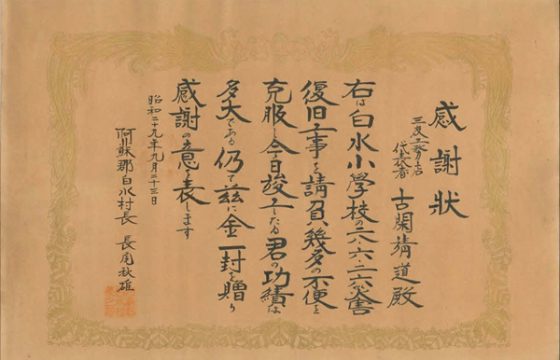 感謝狀
工務店
代表者 古閑道殿
右は白水小學校の二八・六・二六災害
復旧工事を請負幾多の不便を
克服し今日竣工したる君の功績は
多大である仍て茲に金一封を贈り
感謝の意を表します
昭和二十九年九月二十三日
阿蘇郡白水村長 長尾秋雄